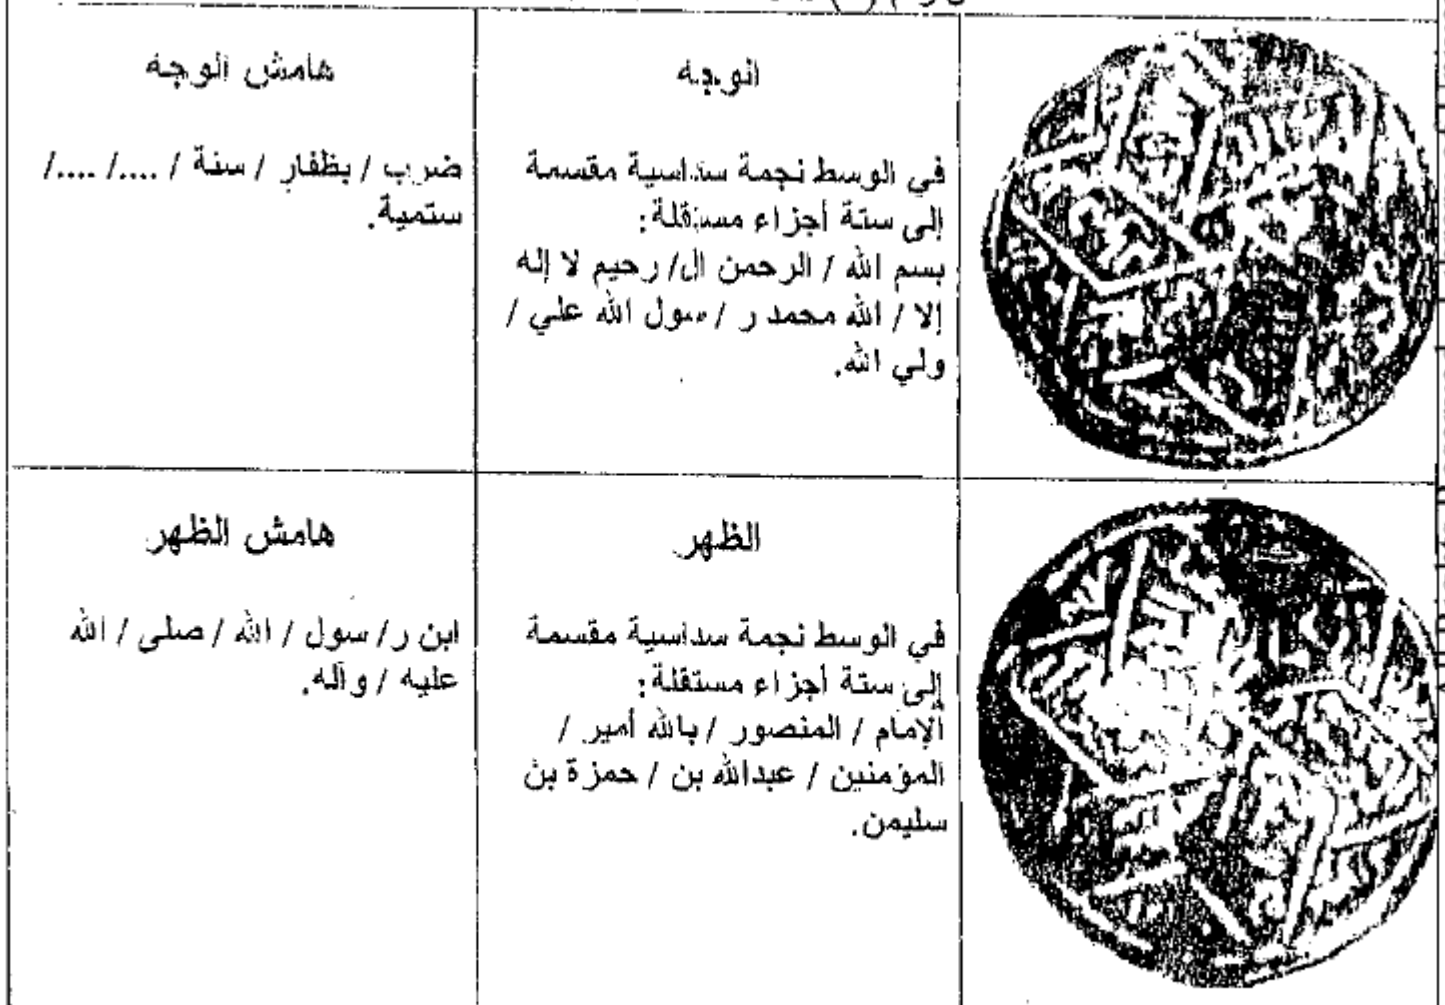 الوجه
في الوسط نجمة سداسية مقسمة
إلى ستة أجزاء مستقلة:
بسم الله / الرحمن ال/ رحيم لا إله
إلا / الله محمد ر / سول الله علي /
ولي الله.
هامش الوجه
ضرب / بظفار / سنة / ..../ ..../
ستمية.
الظهر
في الوسط نجمة سداسية مقسمة
إلى ستة أجزاء مستقلة:
الإمام / المنصور / بالله أمير /
المؤمنين / عبدالله بن / حمزة بن
سليمن.
هامش الظهر
ابن ر/ سول / الله / صلى / الله
عليه / وآله.